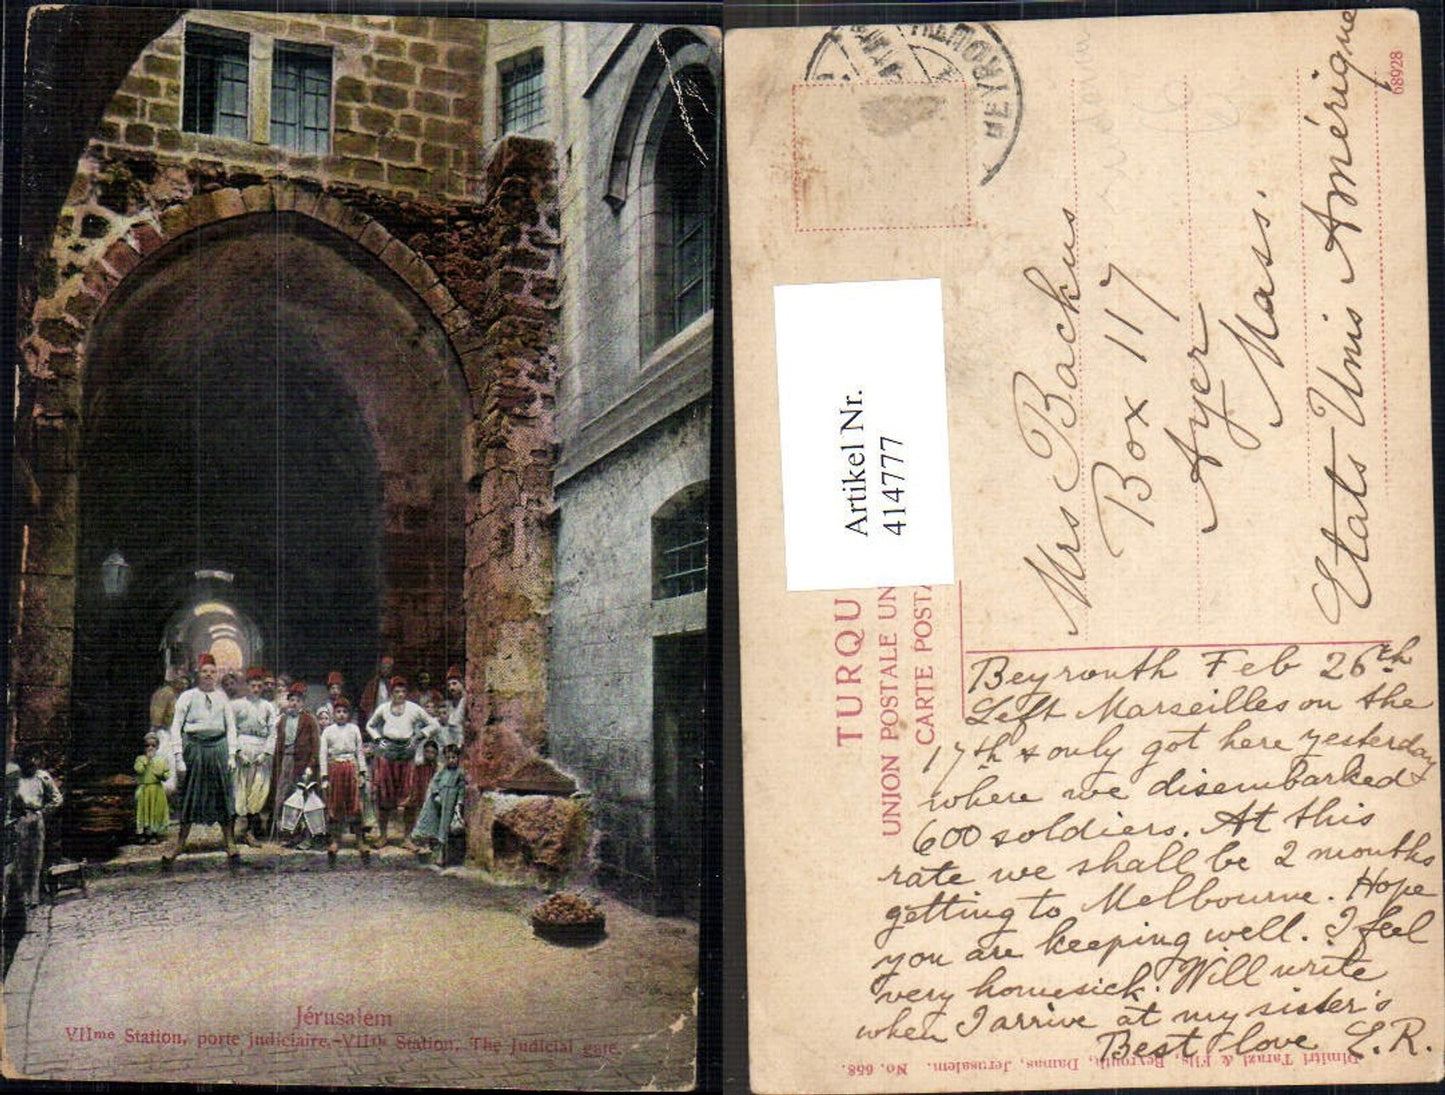 Jérusalem
VIIme Station, porte judiciaire.-VIIth Station, The Judicial gate.
BEYROUTH
68928
Artikel Nr.
414777
TURQU
UNION POSTALE UN
CARTE POSTA
Mrs Backus
Box 117
Ayer
Mass.
Etats Unis Amérique
Beyrouth Feb 26th
Left Marseilles on the
17th & only got here yesterday
where we disembarked
600 soldiers. At this
rate we shall be 2 months
getting to Melbourne. Hope
you are keeping well. I feel
very homesick. Will write
when I arrive at my sister's
Best love L.R.
Dimitri Tarazi & Fils, Beyrouth, Damas, Jerusalem. No. 658.